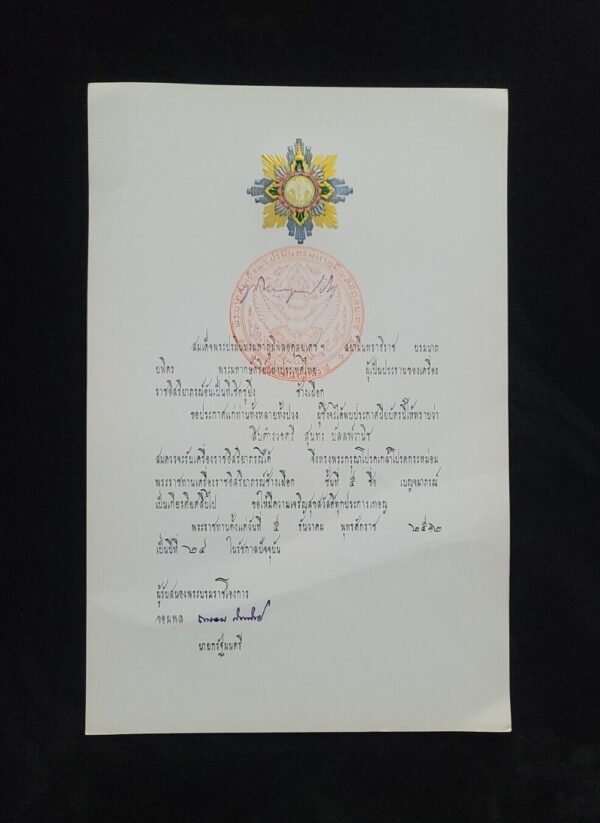 สมเด็จพระปรมินทรมหาภูมิพลอดุลยเดช ฯ สยามินทราธิราช บรมนาถ
บพิตร พระมหากษัตริย์แห่งประเทศไทย ผู้เป็นประธานของเครื่อง
ราชอิสริยาภรณ์อันเป็นที่เชิดชูยิ่ง ช้างเผือก
ขอประกาศแก่ท่านทั้งหลายทั้งปวง ผู้ซึ่งจะได้พบประกาศนียบัตรนี้ให้ทราบว่า
สิบตำรวจตรี สุนทร
สมควรจะรับเครื่องราชอิสริยาภรณ์ได้ จึงทรงพระกรุณาโปรดเกล้าโปรดกระหม่อม
พระราชทานเครื่องราชอิสริยาภรณ์ช้างเผือก ชั้นที่ ๕ ชื่อ เบญจมาภรณ์
เป็นเกียรติยศสืบไป ขอให้มีความเจริญสุขสวัสดิ์ทุกประการเทอญ
พระราชทานตั้งแต่วันที่ ๕ ธันวาคม พุทธศักราช ๒๕๑๒
เป็นปีที่ ๒๔ ในรัชกาลปัจจุบัน
ผู้รับสนองพระบรมราชโองการ
จอมพล
นายกรัฐมนตรี